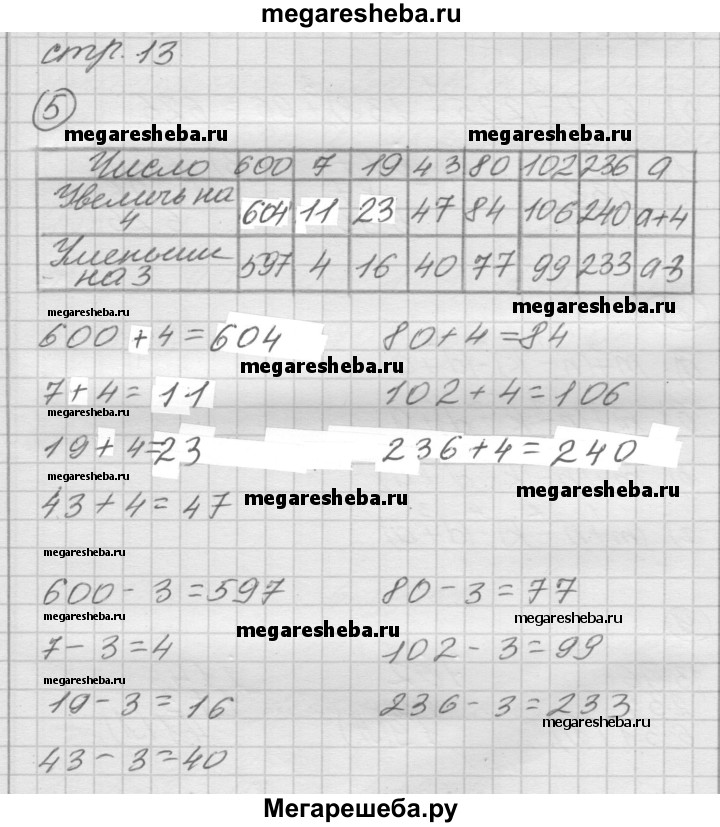 megaresheba.ru
стр. 13
5
megaresheba.ru megaresheba.ru
Число 600 7 19 43 80 102 236 a
Увеличь на 4 604 11 23 47 84 106 240 a+4
Уменьши на 3 597 4 16 40 77 99 233 a-3
megaresheba.ru megaresheba.ru
600 + 4 = 604 80 + 4 = 84
megaresheba.ru
7 + 4 = 11 102 + 4 = 106
megaresheba.ru
19 + 4 = 23 236 + 4 = 240
megaresheba.ru megaresheba.ru
43 + 4 = 47 megaresheba.ru
megaresheba.ru
600 - 3 = 597 80 - 3 = 77
megaresheba.ru megaresheba.ru megaresheba.ru
7 - 3 = 4 102 - 3 = 99
megaresheba.ru
19 - 3 = 16 236 - 3 = 233
megaresheba.ru
43 - 3 = 40
Мегарешеба.ру